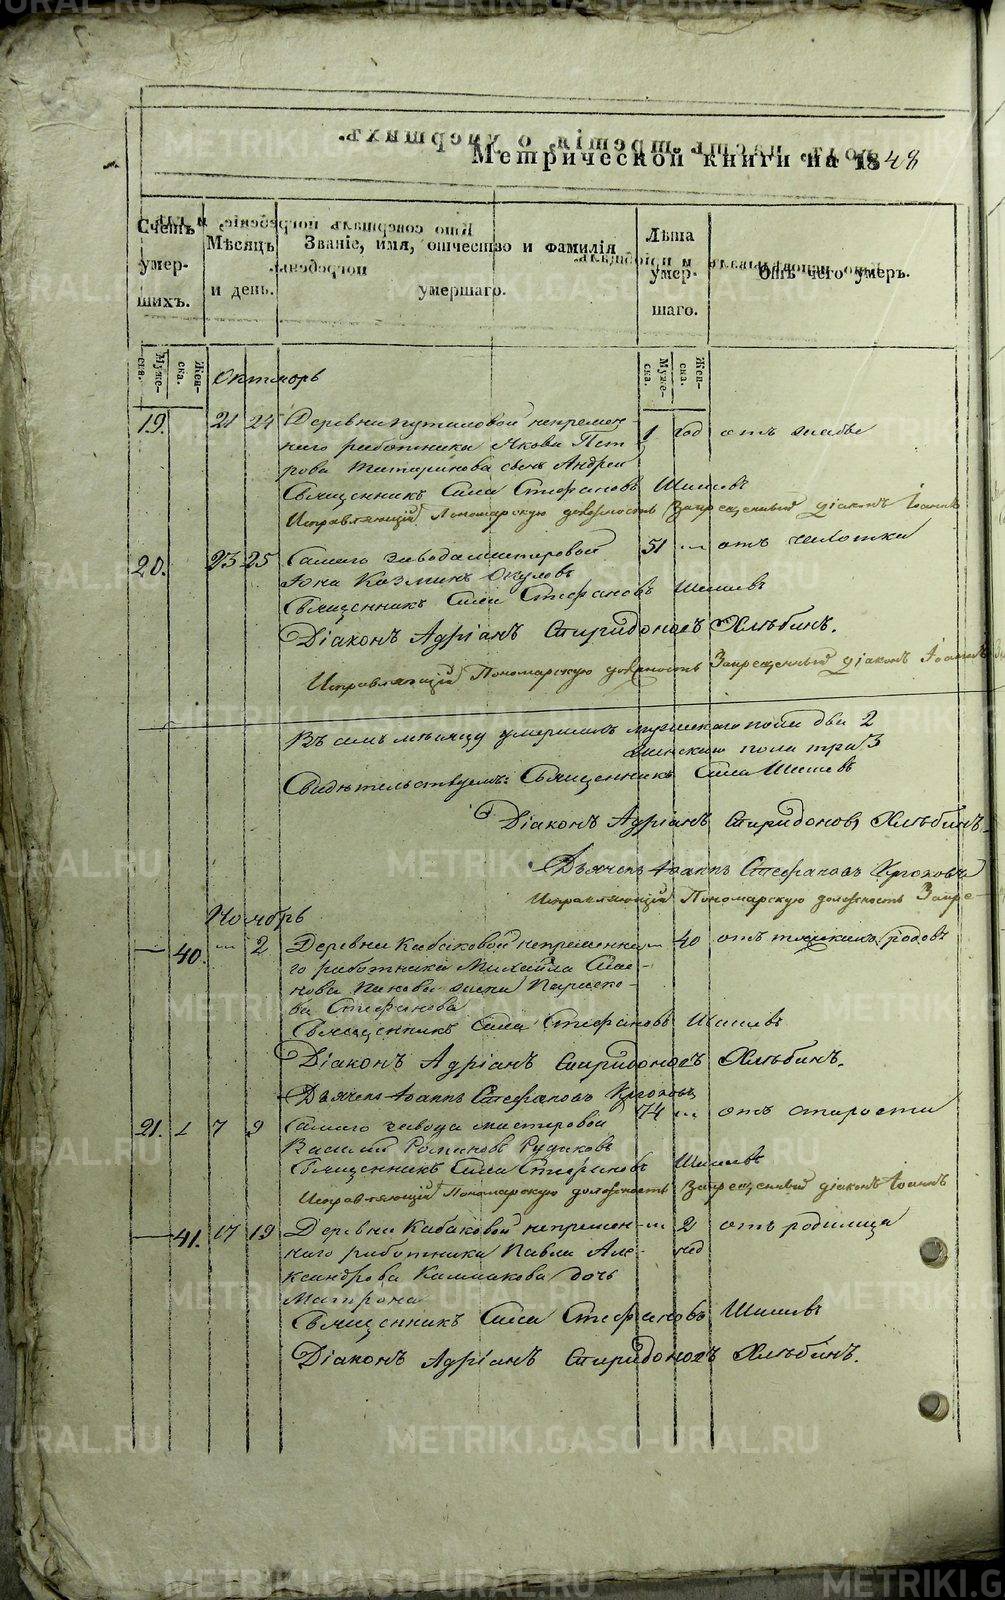 Метрической книги на 1848
Счетъ умер- шихъ.
Мѣсяцъ и день.
Званіе, имя, отчество и фамилія умершаго.
Лѣта умер- шаго.
Отъ чего умеръ.
Муже- ска.
Жен- ска.
Муже- ска.
Жен- ска.
Октябрь
19. 21 24 Деревни Путиловой непремен- 1 год отъ слабо
наго работника Якова Пет
рова Татаринова сынъ Андрей
Священникъ Сила Стефановъ Шишевъ
Исправляющій Пономарскую должность Запрещенный діаконъ Іоаннъ
20. 23 25 Самаго завода мастеровой 51 отъ чахотки
Іона Козминъ Окуловъ
Священникъ Сила Стефановъ Шишевъ
Діаконъ Адріанъ Спиридоновъ Хлѣбинъ.
Исправляющій Пономарскую должность Запрещенный діаконъ Іоаннъ
Въ семъ мѣсяцу умершихъ мужескаго пола два 2
женскаго пола три 3
Свидѣтельствуемъ: Священникъ Сила Шишевъ
Діаконъ Адріанъ Спиридоновъ Хлѣбинъ.
Дьячекъ Іоаннъ Стефановъ
Исправляющій Пономарскую должность Запре-
Ноябрь
— 40. — 2 Деревни Кабаковой непременна- — 40 отъ тяжкихъ родовъ
го работника Михайла
жена Параско-
ва Стефанова
Священникъ Сила Стефановъ Шишевъ
Діаконъ Адріанъ Спиридоновъ Хлѣбинъ.
Дьячекъ Іоаннъ Стефановъ
21. 7 9 Самаго завода мастеровой 74 отъ старости
Василій Романовъ Рудаковъ
Священникъ Сила Стефановъ Шишевъ
Исправляющій Пономарскую должность Запрещенный діаконъ Іоаннъ
— 41. 17 19 Деревни Кабаковой непремен- 2 отъ родимца
наго работника Павла Але- нед
ксандрова дочь
Матрона
Священникъ Сила Стефановъ Шишевъ
Діаконъ Адріанъ Спиридоновъ Хлѣбинъ.
METRIKI.GASO-URAL.RU